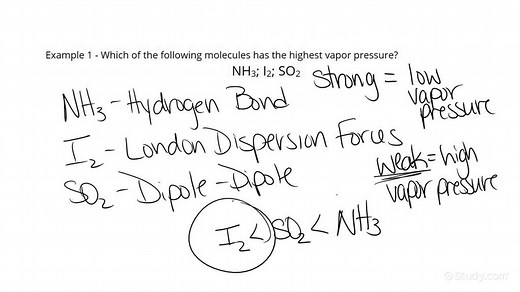 Example 1 - Which of the following molecules has the highest vapor pressure?
NH₃; I₂; SO₂
strong = low
vapor
pressure
NH₃ - Hydrogen Bond
I₂ - London Dispersion Forces
SO₂ - Dipole-Dipole
weak = high
vapor pressure
I₂ < SO₂ < NH₃
Study.com